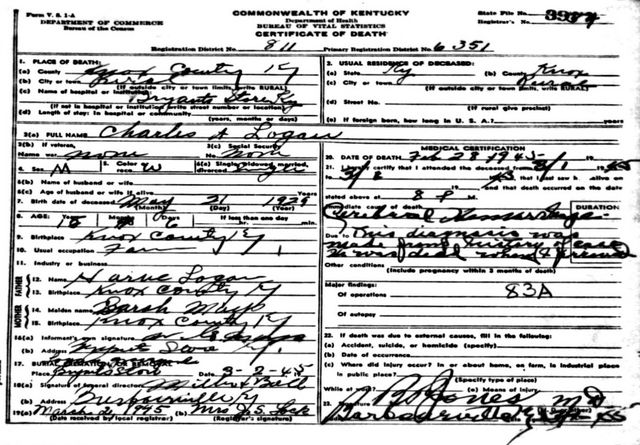 Form V. S. 1-A
DEPARTMENT OF COMMERCE
Bureau of the Census
COMMONWEALTH OF KENTUCKY
Department of Health
BUREAU OF VITAL STATISTICS
CERTIFICATE OF DEATH
State File No.
Registrar's No.
Registration District No. 811 Primary Registration District No. 6351
1. PLACE OF DEATH:
(a) County Knox County Ky
(b) City or town Rural
(If outside city or town limits, write RURAL)
(c) Name of hospital or institution:
Bryants Store Ky
(If not in hospital or institution write street number or location)
(d) Length of stay: In hospital or community
(years, months or days)
2. USUAL RESIDENCE OF DECEASED:
(a) State Ky (b) County Knox
(c) City or town Rural
(If outside city or town limits, write RURAL)
(d) Street No.
(If rural give precinct)
(e) If foreign born, how long in U. S. A.?
3(a) FULL NAME Charles A Logan
3(b) If veteran,
Name war none
3(c) Social Security
No. none
4. Sex M
5. Color or race W
6(a) Single, widowed, married, divorced Single
6(b) Name of husband or wife
6(c) Age of husband or wife if alive Years
7. Birth date of deceased May 21 1929
(Month) (Day) (Year)
8. AGE: Years Months Days If less than one day
15 9 6 hr. min.
9. Birthplace Knox County Ky
10. Usual occupation
11. Industry or business
FATHER
12. Name Harve Logan
13. Birthplace Knox County Ky
MOTHER
14. Maiden name Sarah
15. Birthplace Knox County Ky
16(a) Informant's own signature
(b) Address Bryant Store Ky.
17. BURIAL, CREMATION, OR REMOVAL
Bryants Store 3-2-45
18(a) Signature of funeral director
(b) Address Barbourville Ky
19(a) March 2, 1945 (b) Mrs. J. S. Lock
(Date received by local registrar) (Registrar's signature)
MEDICAL CERTIFICATION
20. DATE OF DEATH Feb 28 1945
21. I hereby certify that I attended the deceased from 3/1 1945
to 3/1 1945, that I last saw h alive on
and that death occurred on the date
stated above at 8 P M.
Immediate cause of death
DURATION
Cerebral Hemorrhage
Due to This diagnosis was
made from history of case
He was dead when I arrived
Other conditions
(Include pregnancy within 3 months of death)
Major findings:
Of operations 83A
Of autopsy
22. If death was due to external causes, fill in the following:
(a) Accident, suicide, or homicide (specify)
(b) Date of occurrence
(c) Where did injury occur? In or about home, on farm, in industrial place
in public place?
(Specify type of place)
While at work? (e) Means of injury
23. Jones MD
Barbourville Ky